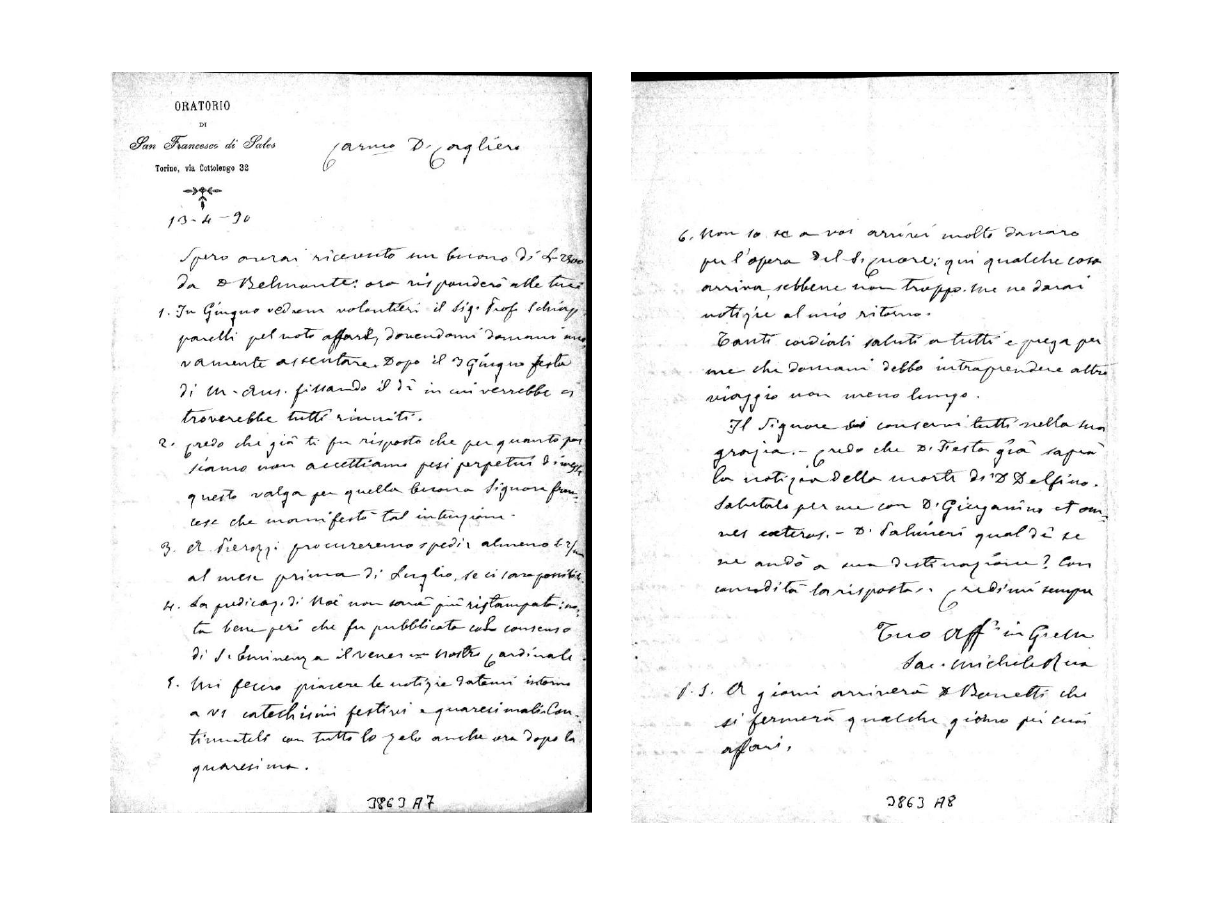 ORATORIO
DI
San Francesco di Sales
Torino, via Cottolengo 32
Carmo D. Cagliero
13-4-90
Spero avrai ricevuto un buono di L
da D Belmonte: ora risponderò alle tue
1. In Giugno vedrem volontieri il Sig. Prof. Schiap
parelli pel noto affare, dovendomi domani nuo
vamente assentare. Dopo il 3 Giugno festa
di M. Aus. fissando il dì in cui verrebbe ci
troverebbe tutti riuniti.
2. Credo che già ti fu risposto che per quanto pos
siamo non accettiamo pesi perpetui di messe
questo valga per quella buona Signora fran-
cese che manifestò tal intenzione.
3. A Pierozzi procureremo spedir almeno
al mese prima di Luglio, se ci sarà possibile.
4. La predicaz. di Noè non sarà più ristampata: no-
ta bene però che fu pubblicata col consenso
di S. Eminenza il nostro Cardinale.
5. Mi fecero piacere le notizie datemi intorno
a vs catechismi festivi e quaresimali. Con-
tinuateli con tutto lo zelo anche ora dopo la
quaresima.
3863 A7
6. Non so se a voi arrivi molto danaro
per l'opera del Signore; qui qualche cosa
arriva, sebbene non troppo. Me ne darai
notizie al mio ritorno.
Tanti cordiali saluti a tutti e prega per
me che domani debbo intraprendere altro
viaggio non meno lungo.
Il Signore conservi tutti nella sua
grazia. - Credo che D. Festa già saprà
la notizia della morte di D Delfino.
Salutalo per me con D. Giurganino et om-
nes caeteros. - D. Palmieri qual dì se
ne andò a sua destinazione? Con
comodità la risposta. Credimi sempre
Tuo Aff. in G.
Sac. Michele Rua
P. S. A giorni arriverà D Bonetti che
si fermerà qualche giorno pei suoi
affari.
3863 A8